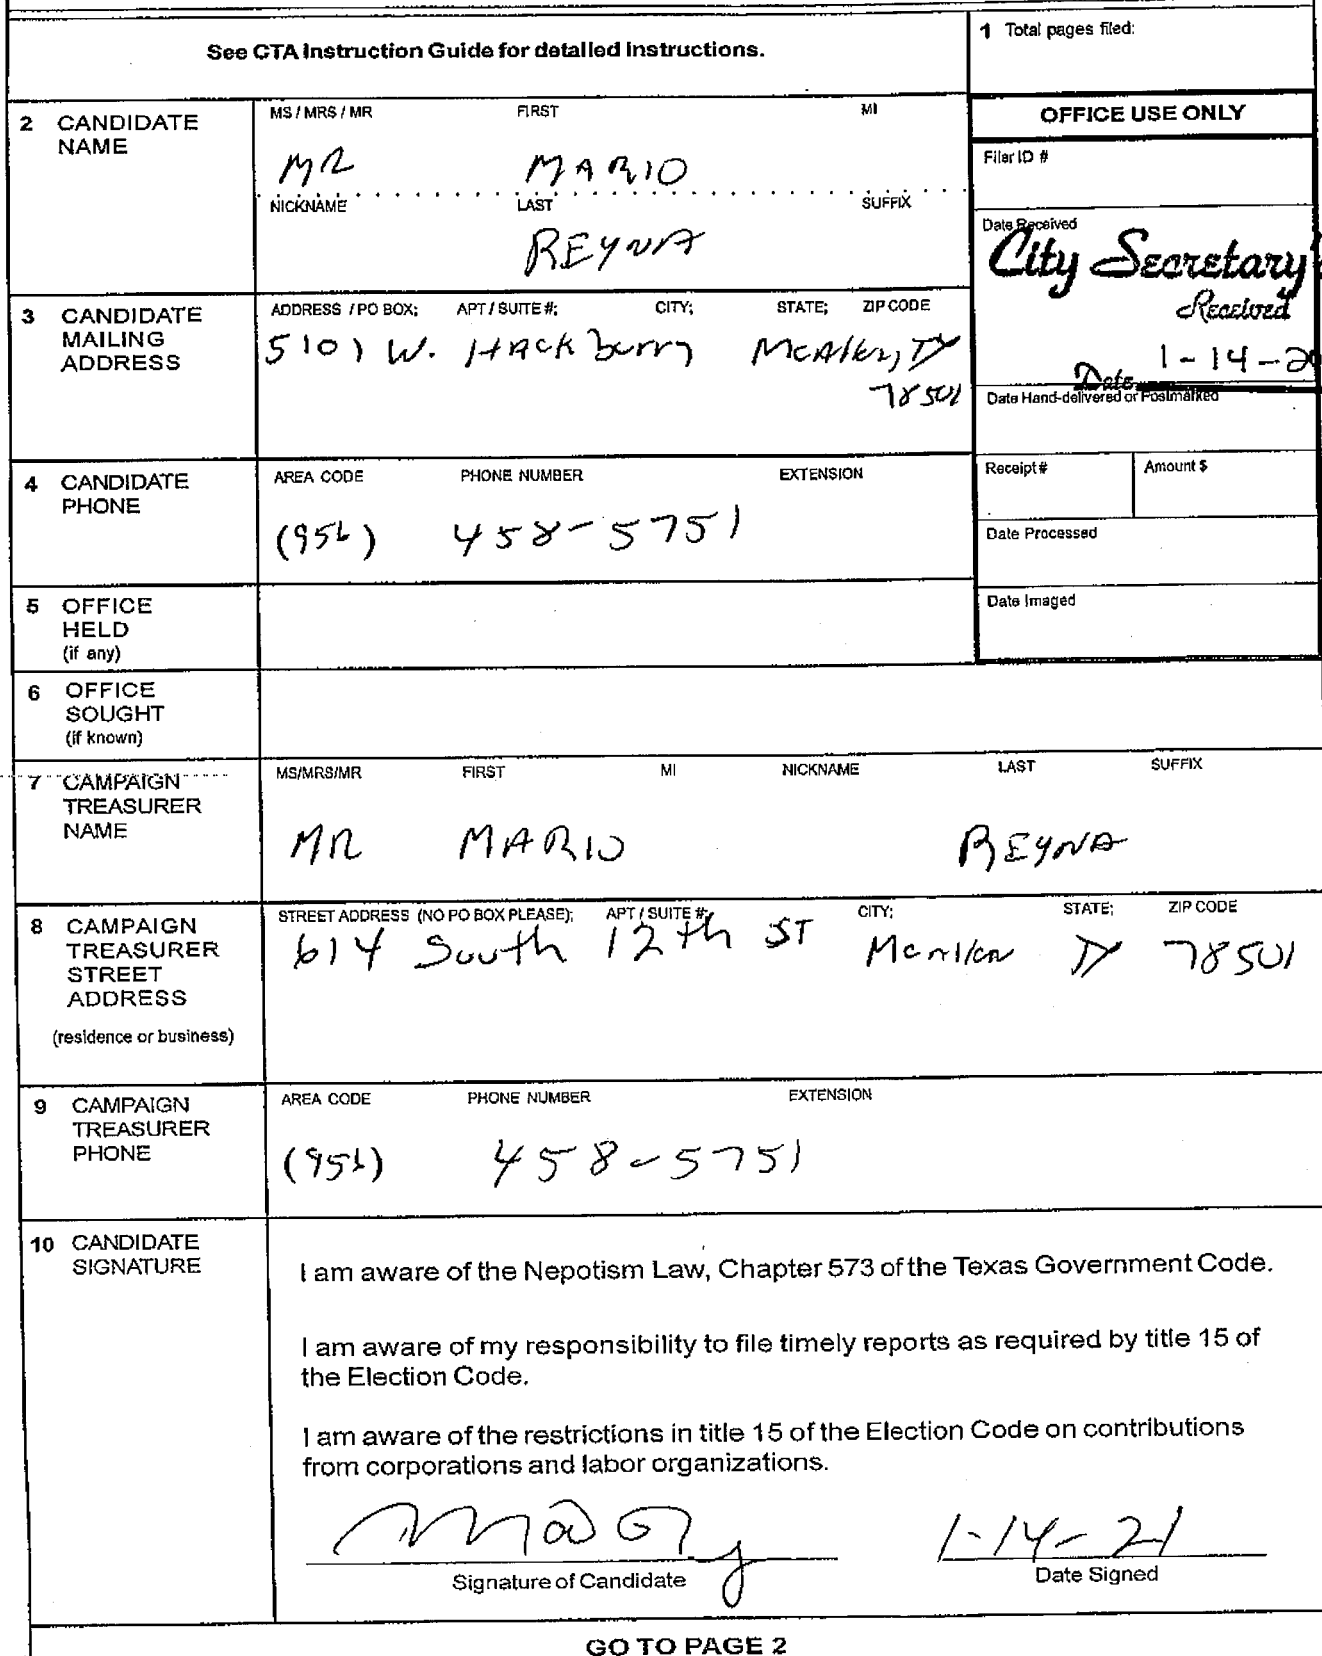 See CTA Instruction Guide for detailed instructions.
1 Total pages filed:
2 CANDIDATE NAME
MS / MRS / MR FIRST MI
MR MARIO
NICKNAME LAST SUFFIX
REYNA
OFFICE USE ONLY
Filer ID #
Date Received
City Secretary
Received
Date 1-14-20
Date Hand-delivered or Postmarked
Receipt # Amount $
Date Processed
Date Imaged
3 CANDIDATE MAILING ADDRESS
ADDRESS / PO BOX; APT / SUITE #; CITY; STATE; ZIP CODE
5101 W. Hackberry McAllen, TX
78501
4 CANDIDATE PHONE
AREA CODE PHONE NUMBER EXTENSION
(956) 458-5751
5 OFFICE HELD (if any)
6 OFFICE SOUGHT (if known)
7 CAMPAIGN TREASURER NAME
MS/MRS/MR FIRST MI NICKNAME LAST SUFFIX
MR MARIO REYNA
8 CAMPAIGN TREASURER STREET ADDRESS
(residence or business)
STREET ADDRESS (NO PO BOX PLEASE); APT / SUITE #; CITY; STATE; ZIP CODE
614 South 12th ST McAllen TX 78501
9 CAMPAIGN TREASURER PHONE
AREA CODE PHONE NUMBER EXTENSION
(956) 458-5751
10 CANDIDATE SIGNATURE
I am aware of the Nepotism Law, Chapter 573 of the Texas Government Code.
I am aware of my responsibility to file timely reports as required by title 15 of
the Election Code.
I am aware of the restrictions in title 15 of the Election Code on contributions
from corporations and labor organizations.
1-14-21
Signature of Candidate Date Signed
GO TO PAGE 2